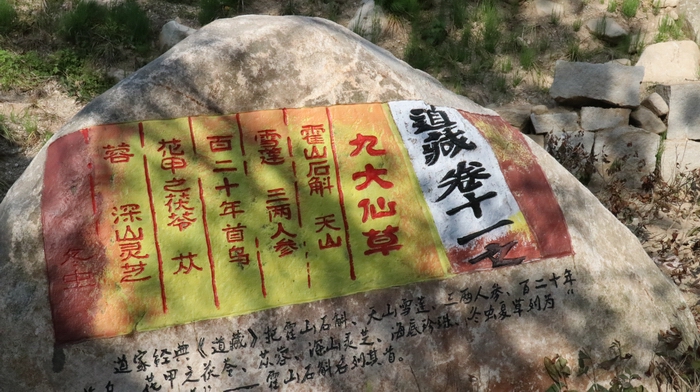 道藏 卷十一
九大仙草
霍山石斛 天山
雪莲 三两人参
百二十年首乌
花甲之茯苓 苁
蓉 深山灵芝
道家经典《道藏》把霍山石斛、天山雪莲、三两人参、百二十年
首乌、花甲之茯苓、苁蓉、深山灵芝、海底珍珠、冬虫夏草列为
——霍山石斛名列其首。